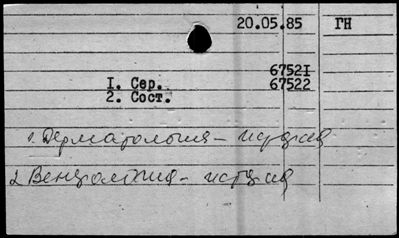 20.05.85 ГН
67521
I. Сер. 67522
2. Сост.
1. Дерматология -
2. Венерология -